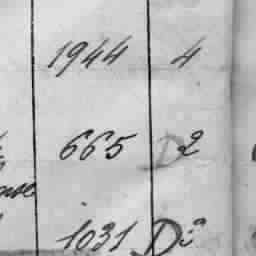 1944 4
665 2
1031 Do